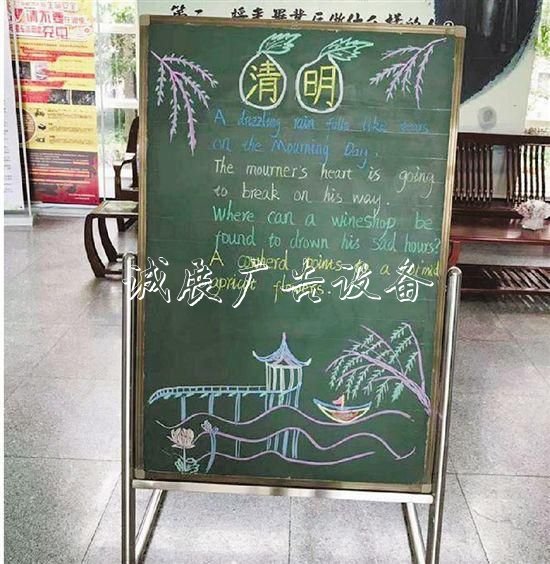 请不要在
充电
清明
A dazzling rain falls like tears
on the Mourning Day.
The mourner's heart is going
to break on his way.
Where can a wineshop be
found to drown his sad hours?
A points to a mid
flowers.
诚展广告设备